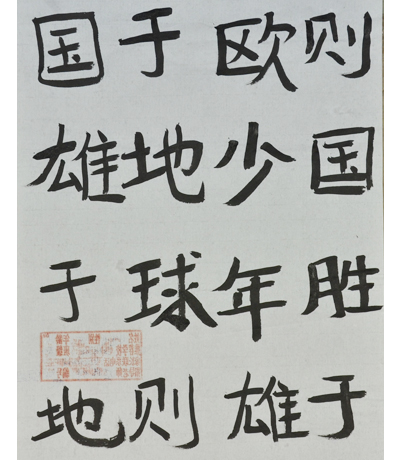 则国胜于
欧少年雄
于地球则
国雄于地